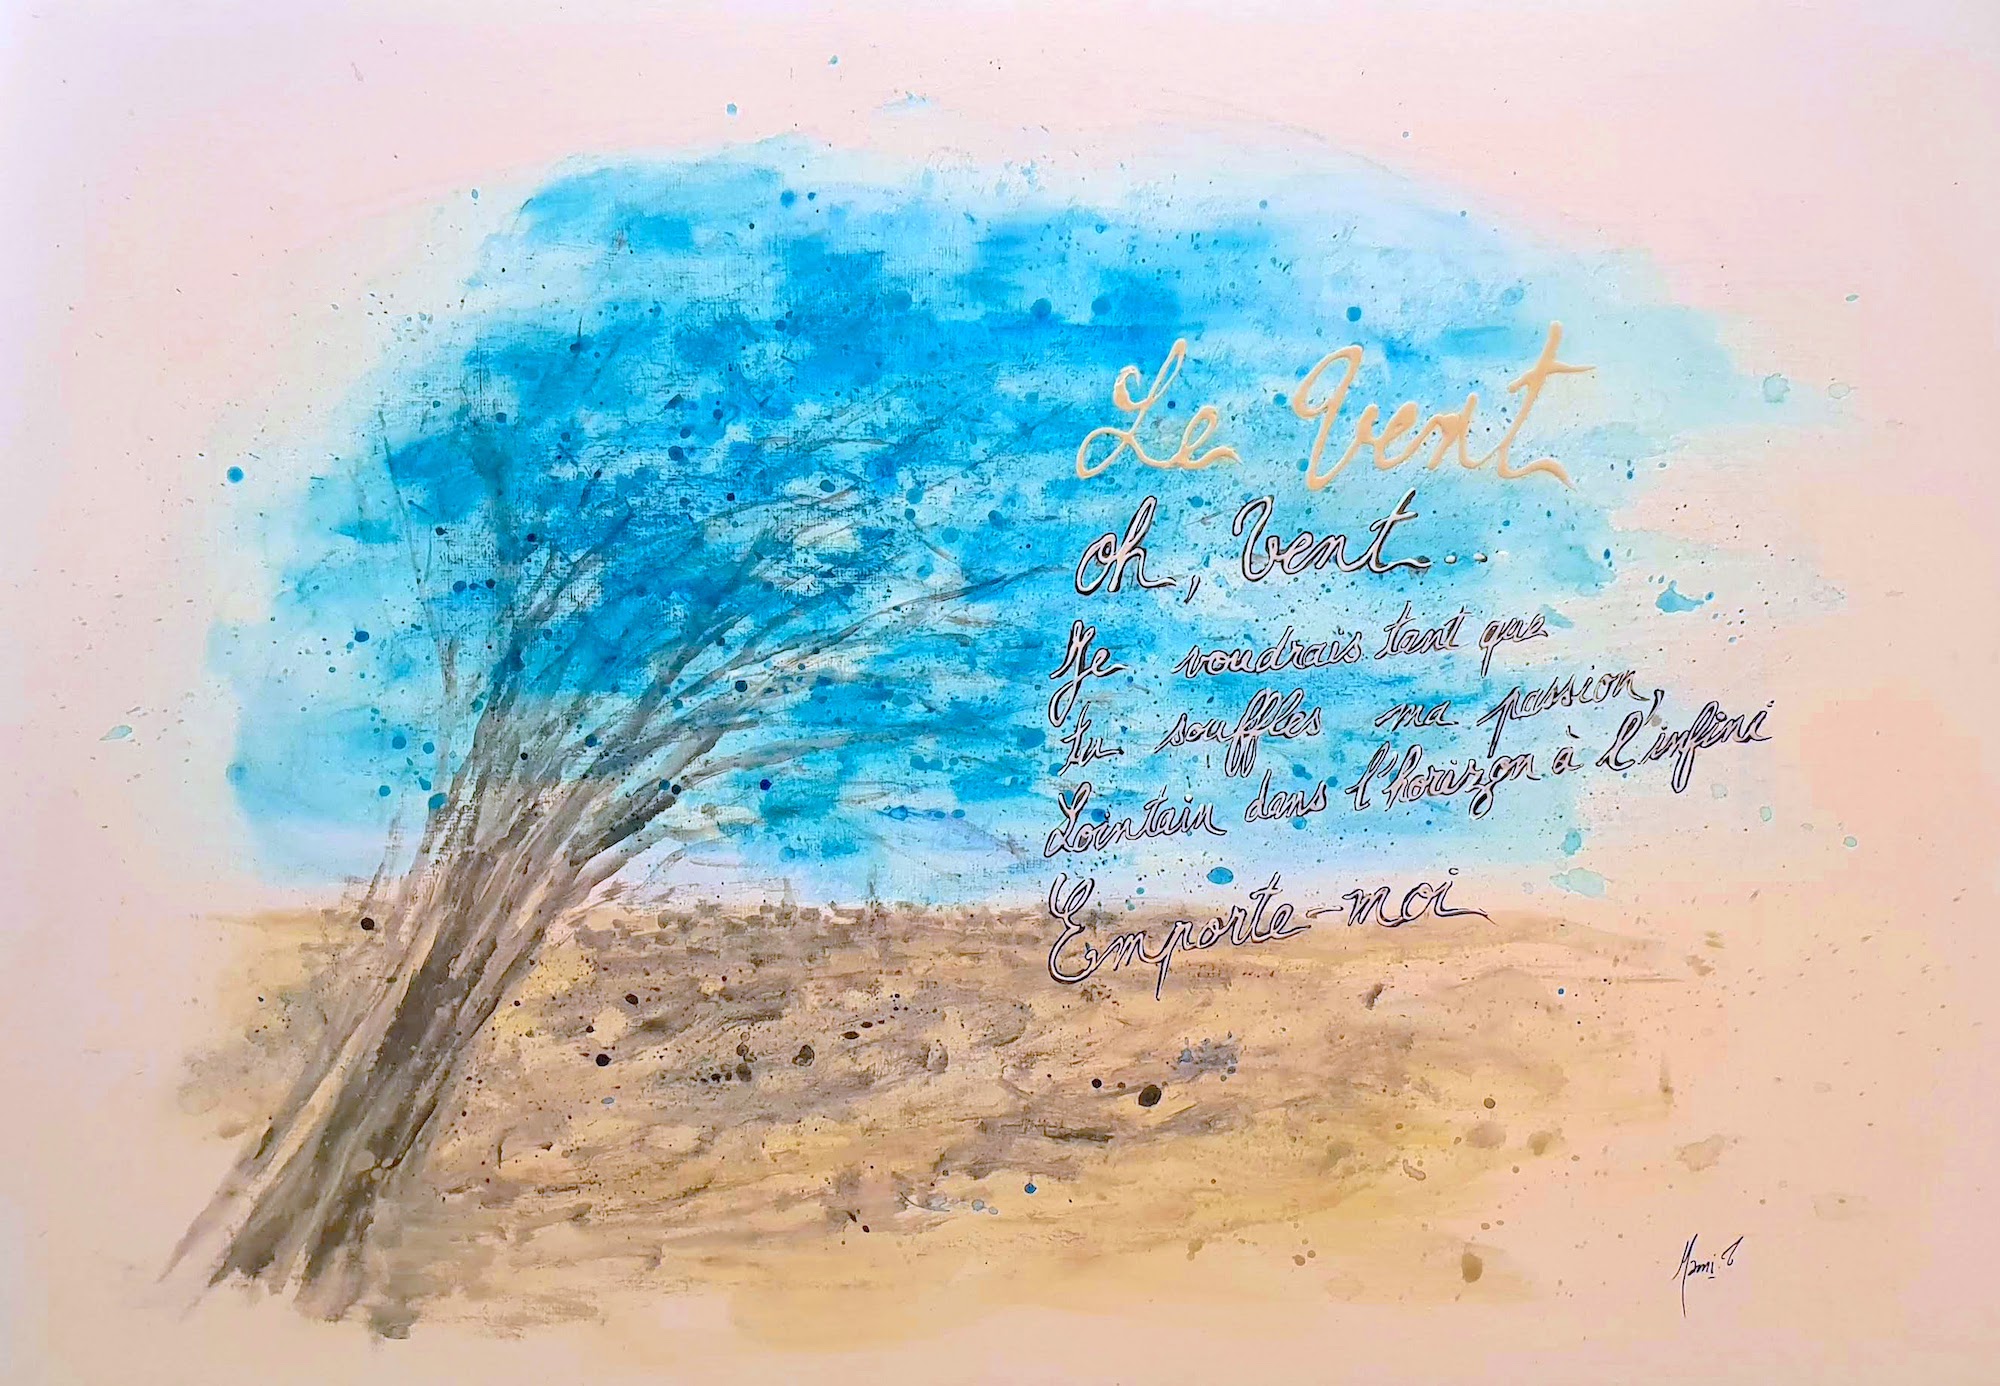 Le Vent
oh, Vent...
Je voudrais tant que
tu souffles ma passion,
Lointain dans l'horizon à l'infini
Emporte-moi
Mami.T